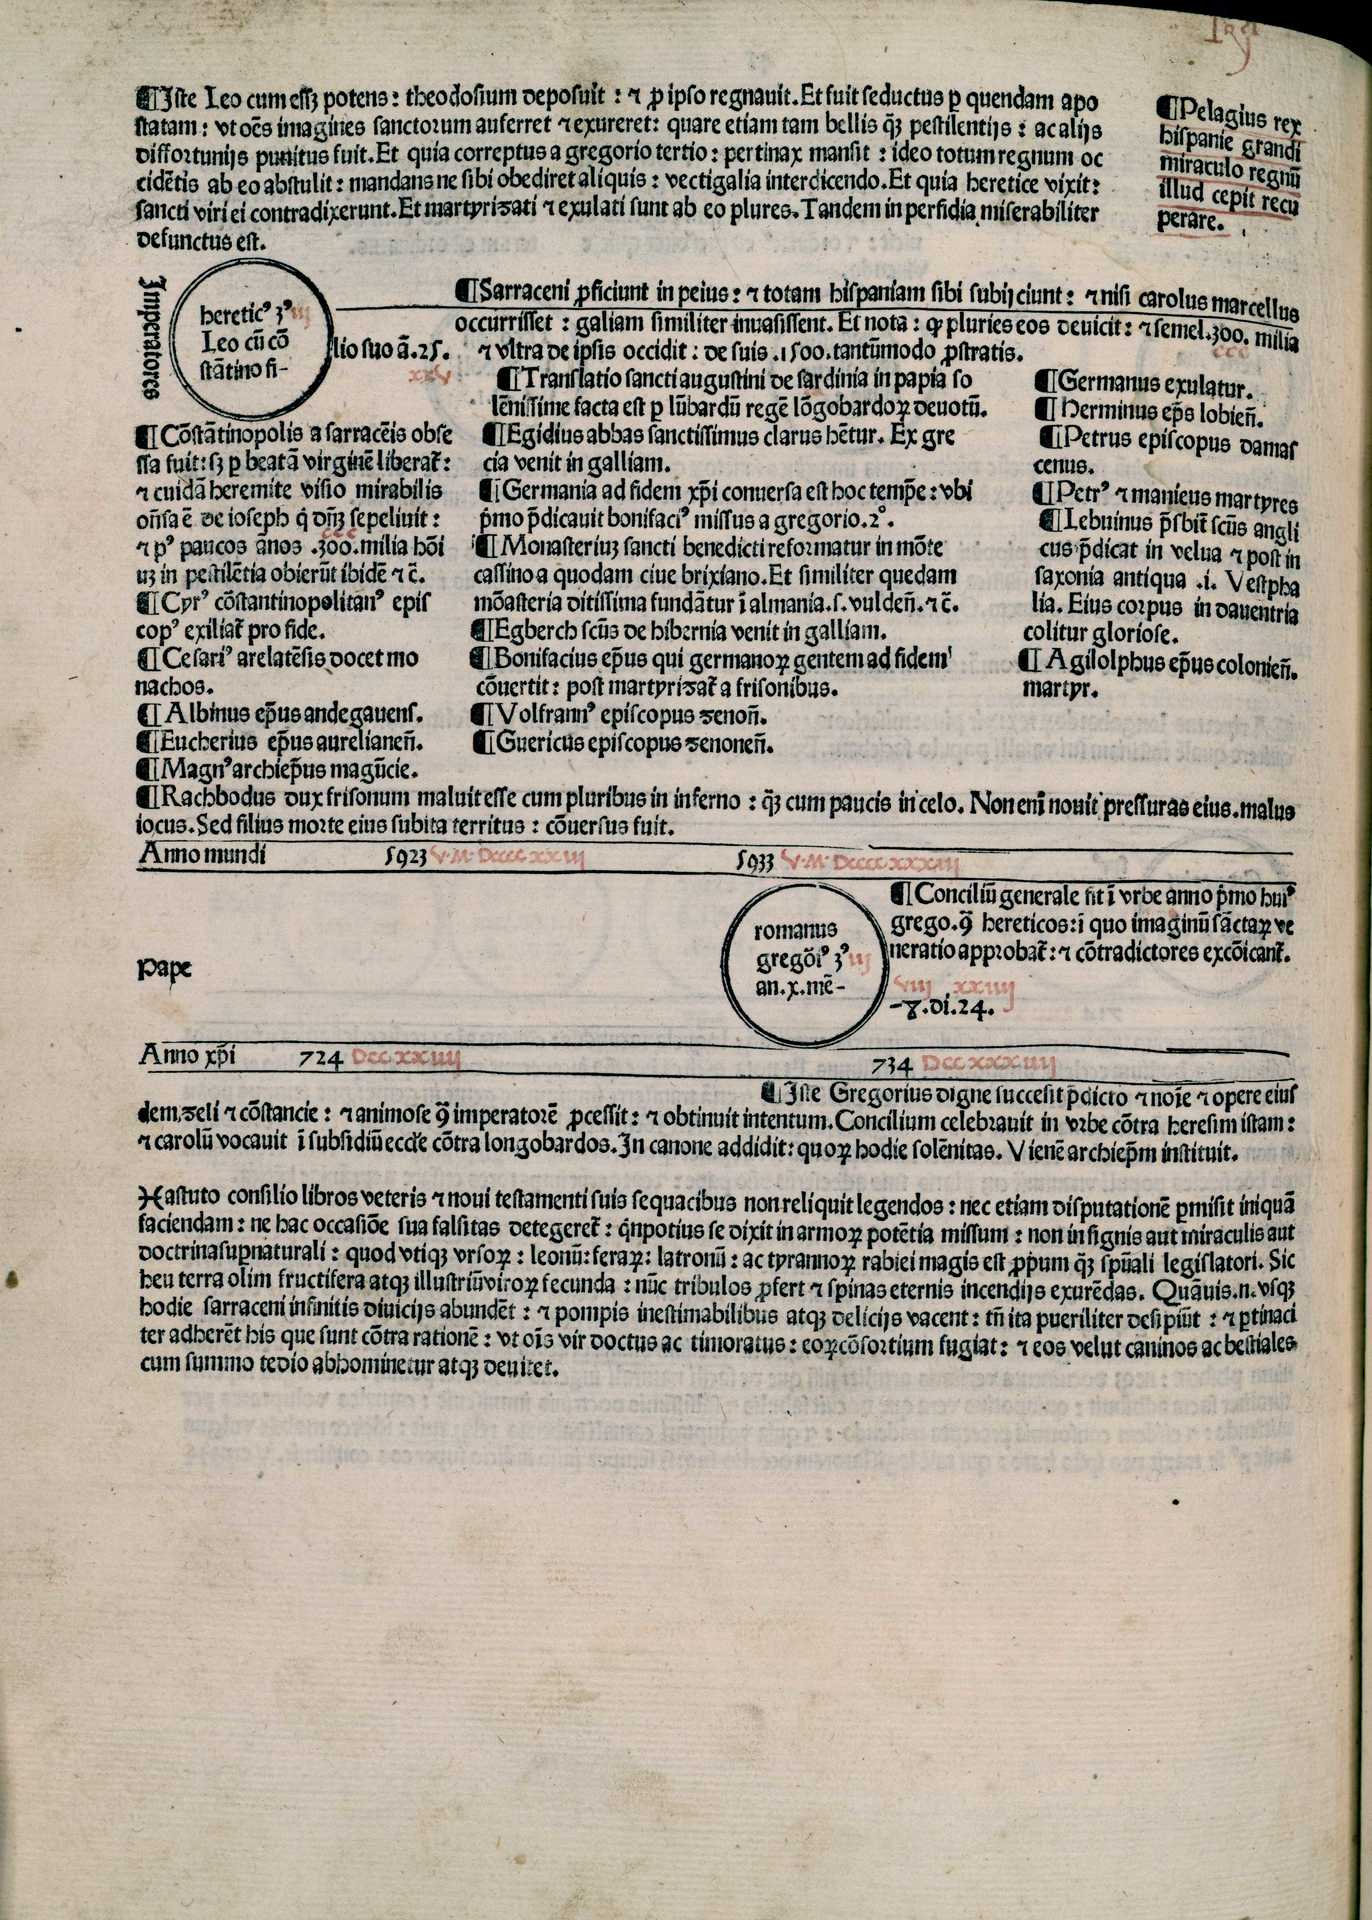 ¶Iste Leo cum essꝫ potens: theodosium deposuit: ⁊ ꝓ ipso regnauit. Et fuit seductus ꝑ quendam apo
statam: vt oẽs imagines sanctorum auferret ⁊ exureret: quare etiam tam bellis qꝫ pestilentijs: ac alijs
diffortunijs punitus fuit. Et quia correptus a gregorio tertio: pertinax mansit: ideo totum regnum oc
cidẽtis ab eo abstulit: mandans ne sibi obediret aliquis: vectigalia interdicendo. Et quia heretice vixit:
sancti viri ei contradixerunt. Et martyrizati ⁊ exulati sunt ab eo plures. Tandem in perfidia miserabiliter
defunctus est.
¶Pelagius rex
hispanie grandi
miraculo regnũ
illud cepit recu
perare.
Imperatores
heretic⁹ 3⁹ iij
Leo cũ cõ
stãtino fi-
lio suo ã. 25.
xxv
¶Sarraceni ꝓficiunt in peius: ⁊ totam hispaniam sibi subijciunt: ⁊ nisi carolus marcellus
occurrisset: galiam similiter inuasissent. Et nota: ꝙ pluries eos deuicit: ⁊ semel .300. milia
ccc
⁊ vltra de ipsis occidit: de suis .1500. tantũmodo ꝓstratis.
¶Cõstãtinopolis a sarracẽis obse
ssa fuit: sꝫ ꝑ beatã virginẽ liberat᷑:
⁊ cuidã heremite visio mirabilis
oñsa ẽ de ioseph q̇ dñꝫ sepeliuit:
ccc
⁊ p⁹ paucos ãnos .300. milia hõi
uꝫ in pestilẽtia obierũt ibidẽ ⁊ c̃.
¶Cyr⁹ cõstantinopolitan⁹ epis
cop⁹ exiliat᷑ pro fide.
¶Cesari⁹ arelatẽsis docet mo
nachos.
¶Albinus ep̃us andegauens.
¶Eucherius ep̃us aurelianeñ.
¶Magn⁹ archiep̃us magũcie.
¶Translatio sancti augustini de sardinia in papia so
lẽnissime facta est ꝑ lũbardũ regẽ lõgobardoꝝ deuotũ.
¶Egidius abbas sanctissimus clarus hẽtur. Ex gre
cia venit in galliam.
¶Germania ad fidem xp̃i conuersa est hoc temp̃e: vbi
p̃mo p̃dicauit bonifaci⁹ missus a gregorio .2°.
¶Monasteriuꝫ sancti benedicti reformatur in mõte
cassino a quodam ciue brixiano. Et similiter quedam
mõasteria ditissima fundãtur ĩ almania. s. vuldeñ. ⁊ c̃.
¶Egberch scũs de hibernia venit in galliam.
¶Bonifacius ep̃us qui germanoꝝ gentem ad fidem
cõuertit: post martyrizat᷑ a frisonibus.
¶Volfrann⁹ episcopus zenoñ.
¶Guericus episcopus zenoneñ.
¶Germanus exulatur.
¶Herminus ep̃s lobieñ.
¶Petrus episcopus damas
cenus.
¶Petr⁹ ⁊ manieus martyres
¶Lebuinus p̃sbit᷑ scũs angli
cus p̃dicat in velua ⁊ post in
saxonia antiqua .i. Vestpha
lia. Eius corpus in dauentria
colitur gloriose.
¶Agilolphus ep̃us colonieñ.
martyr.
¶Rachbodus dux frisonum maluit esse cum pluribus in inferno: qꝫ cum paucis in celo. Non eni᷑ nouit pressuras eius. malus
iocus. Sed filius morte eius subita territus: cõuersus fuit.
Anno mundi 5923 V·M·Dcccc·xxiij 5933 V·M·Dcccc·xxxiij
Pape
romanus
gregõi⁹ 3⁹ iij
an. x. mẽ-
¶Conciliũ generale fit ĩ vrbe anno p̃mo hui⁹
grego. ꝯ̃ hereticos: ĩ quo imaginũ sãctaꝝ ve
neratio approbat᷑: ⁊ cõtradictores excõicant᷑.
viij xxiiij
-8. di. 24.
Anno xp̃i 724 Dcc xxiiij 734 Dcc xxxiiij
¶Iste Gregorius digne succesit p̃dicto ⁊ noĩe ⁊ opere eius
dem, zeli ⁊ cõstancie: ⁊ animose ꝯ̃ imperatorẽ ꝓcessit: ⁊ obtinuit intentum. Concilium celebrauit in vrbe cõtra heresim istam:
⁊ carolũ vocauit ĩ subsidiũ eccl̃e cõtra longobardos. In canone addidit: quoꝝ hodie solẽnitas. Vienẽ archiep̃m instituit.
astuto consilio libros veteris ⁊ noui testamenti suis sequacibus non reliquit legendos: nec etiam disputationẽ ꝑmisit iniquã
faciendam: ne hac occasiõe sua falsitas detegeret᷑: q̇npotius se dixit in armoꝝ potẽtia missum: non in signis aut miraculis aut
doctrina suꝑnaturali: quod vtiqꝫ vrsoꝝ: leonũ: feraꝝ: latronũ: ac tyrannoꝝ rabiei magis est ꝓp̃um qꝫ sp̃uali legislatori. Sic
heu terra olim fructifera atqꝫ illustriũ viroꝝ fecunda: nũc tribulos ꝓfert ⁊ spinas eternis incendijs exurẽdas. Quãuis. n. vsqꝫ
hodie sarraceni infinitis diuicijs abundẽt: ⁊ pompis inestimabilibus atqꝫ delicijs vacent: tñ ita pueriliter desipiũt: ⁊ ꝑtinaci
ter adherẽt his que sunt cõtra rationẽ: vt oĩs vir doctus ac timoratus: eoꝝ cõsortium fugiat: ⁊ eos velut caninos ac bestiales
cum summo tedio abhominetur atqꝫ deuitet.